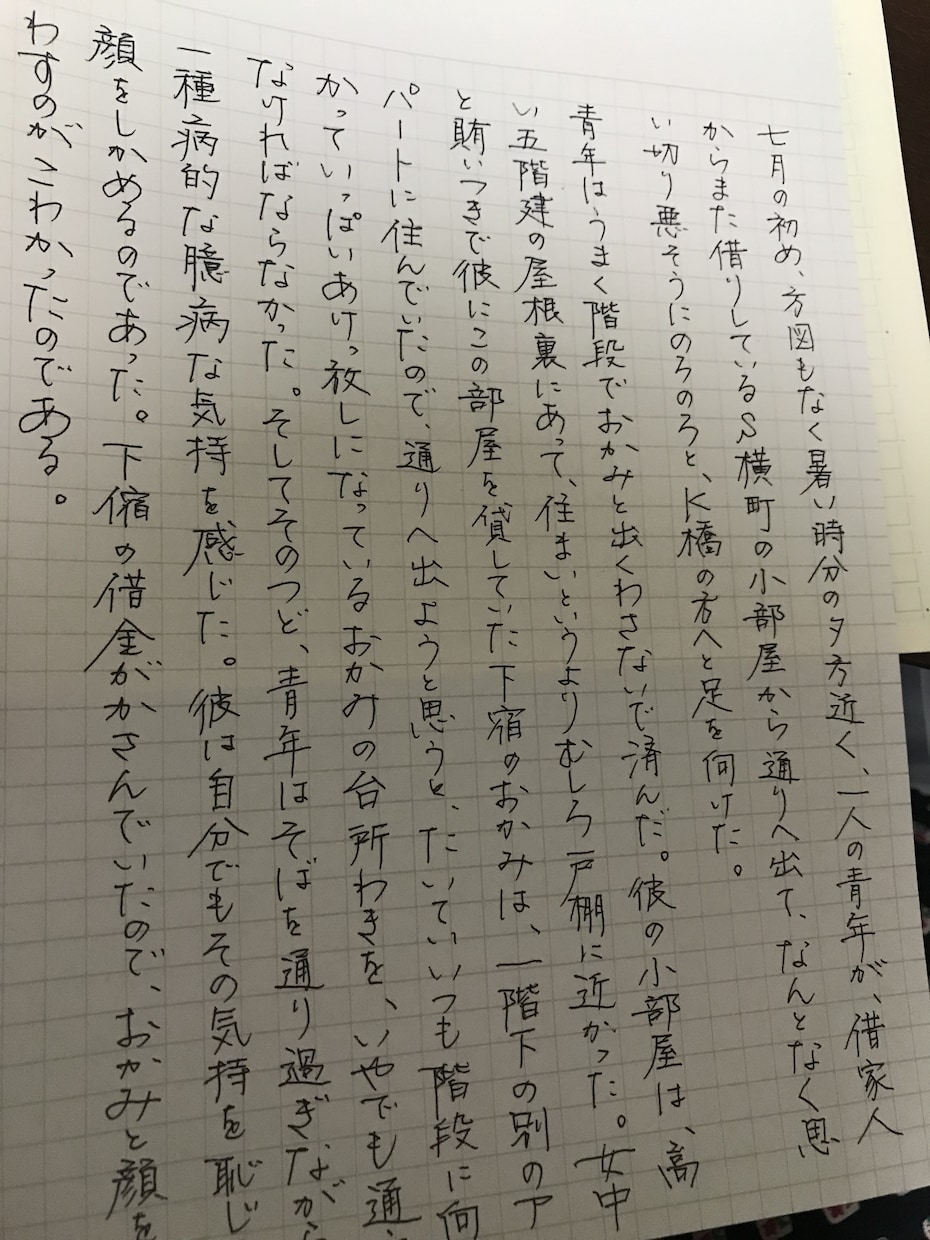 七月の初め、方図もなく暑い時分の夕方近く、一人の青年が、借家人
からまた借りしているS横町の小部屋から通りへ出て、なんとなく思
い切り悪そうにのろのろと、K橋の方へと足を向けた。
青年はうまく階段でおかみと出くわさないで済んだ。彼の小部屋は、高
い五階建の屋根裏にあって、住まいというよりむしろ戸棚に近かった。女中
と賄いつきで彼にこの部屋を貸していた下宿のおかみは、一階下の別のア
パートに住んでいたので、通りへ出ようと思うと、たいていいつも階段に向
かっていっぱいあけっ放しになっているおかみの台所わきを、いやでも通
なければならなかった。そしてそのつど、青年はそばを通り過ぎながら
一種病的な臆病な気持を感じた。彼は自分でもその気持を恥じ
顔をしかめるのであった。下宿の借金がかさんでいたので、おかみと顔を
わすのがこわかったのである。